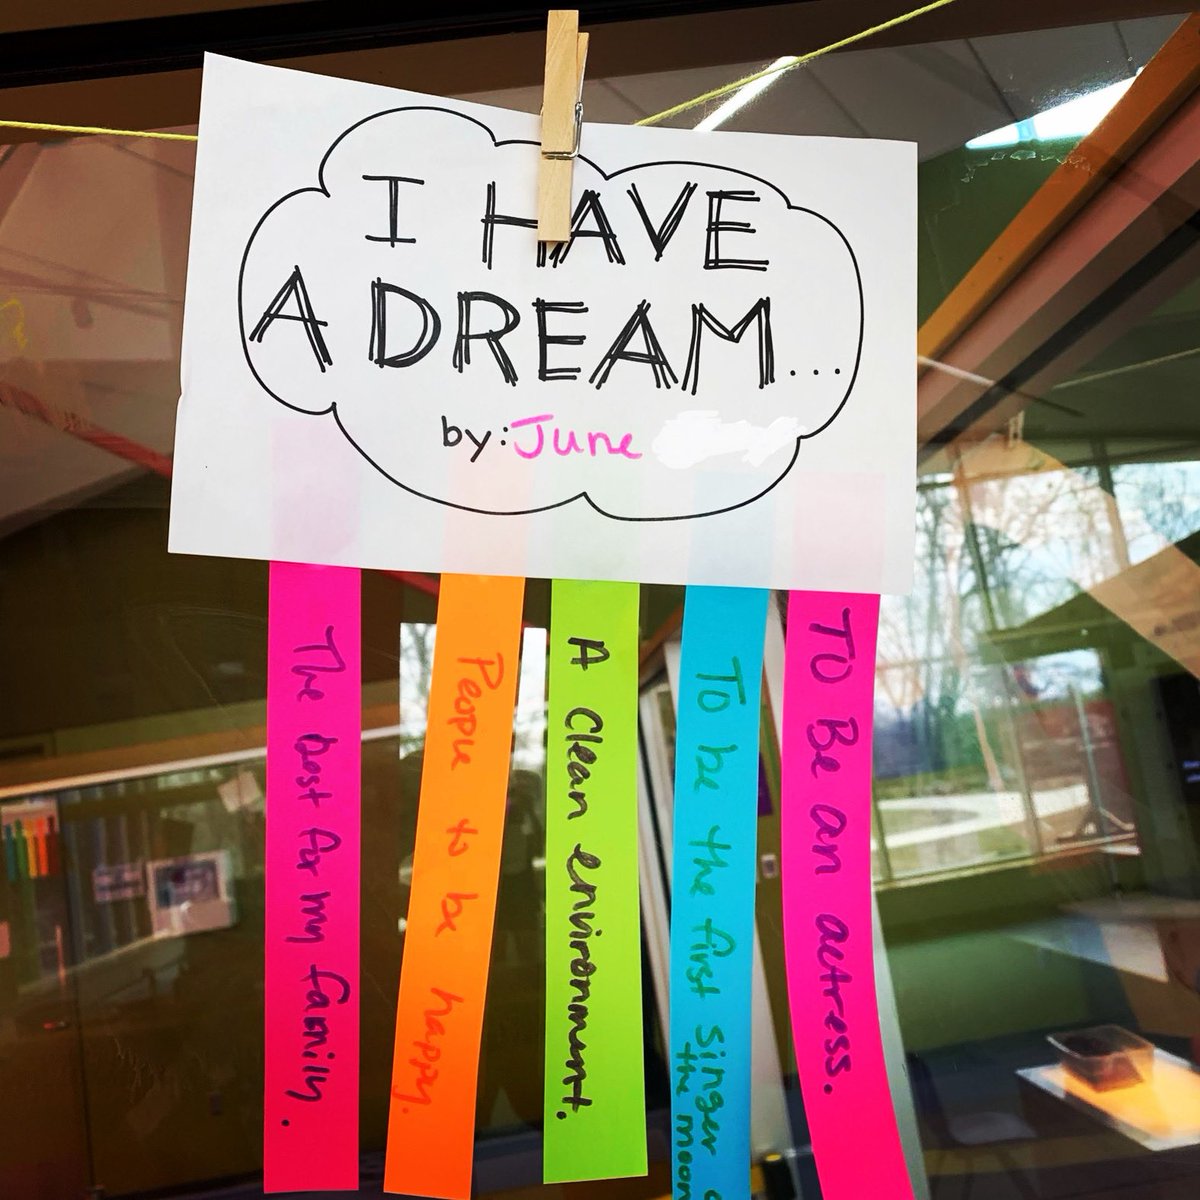 I HAVE
A DREAM...
by: June
The best for my family.
People to be happy.
A Clean environment.
To be the first singer
the moon
TO Be an actress.